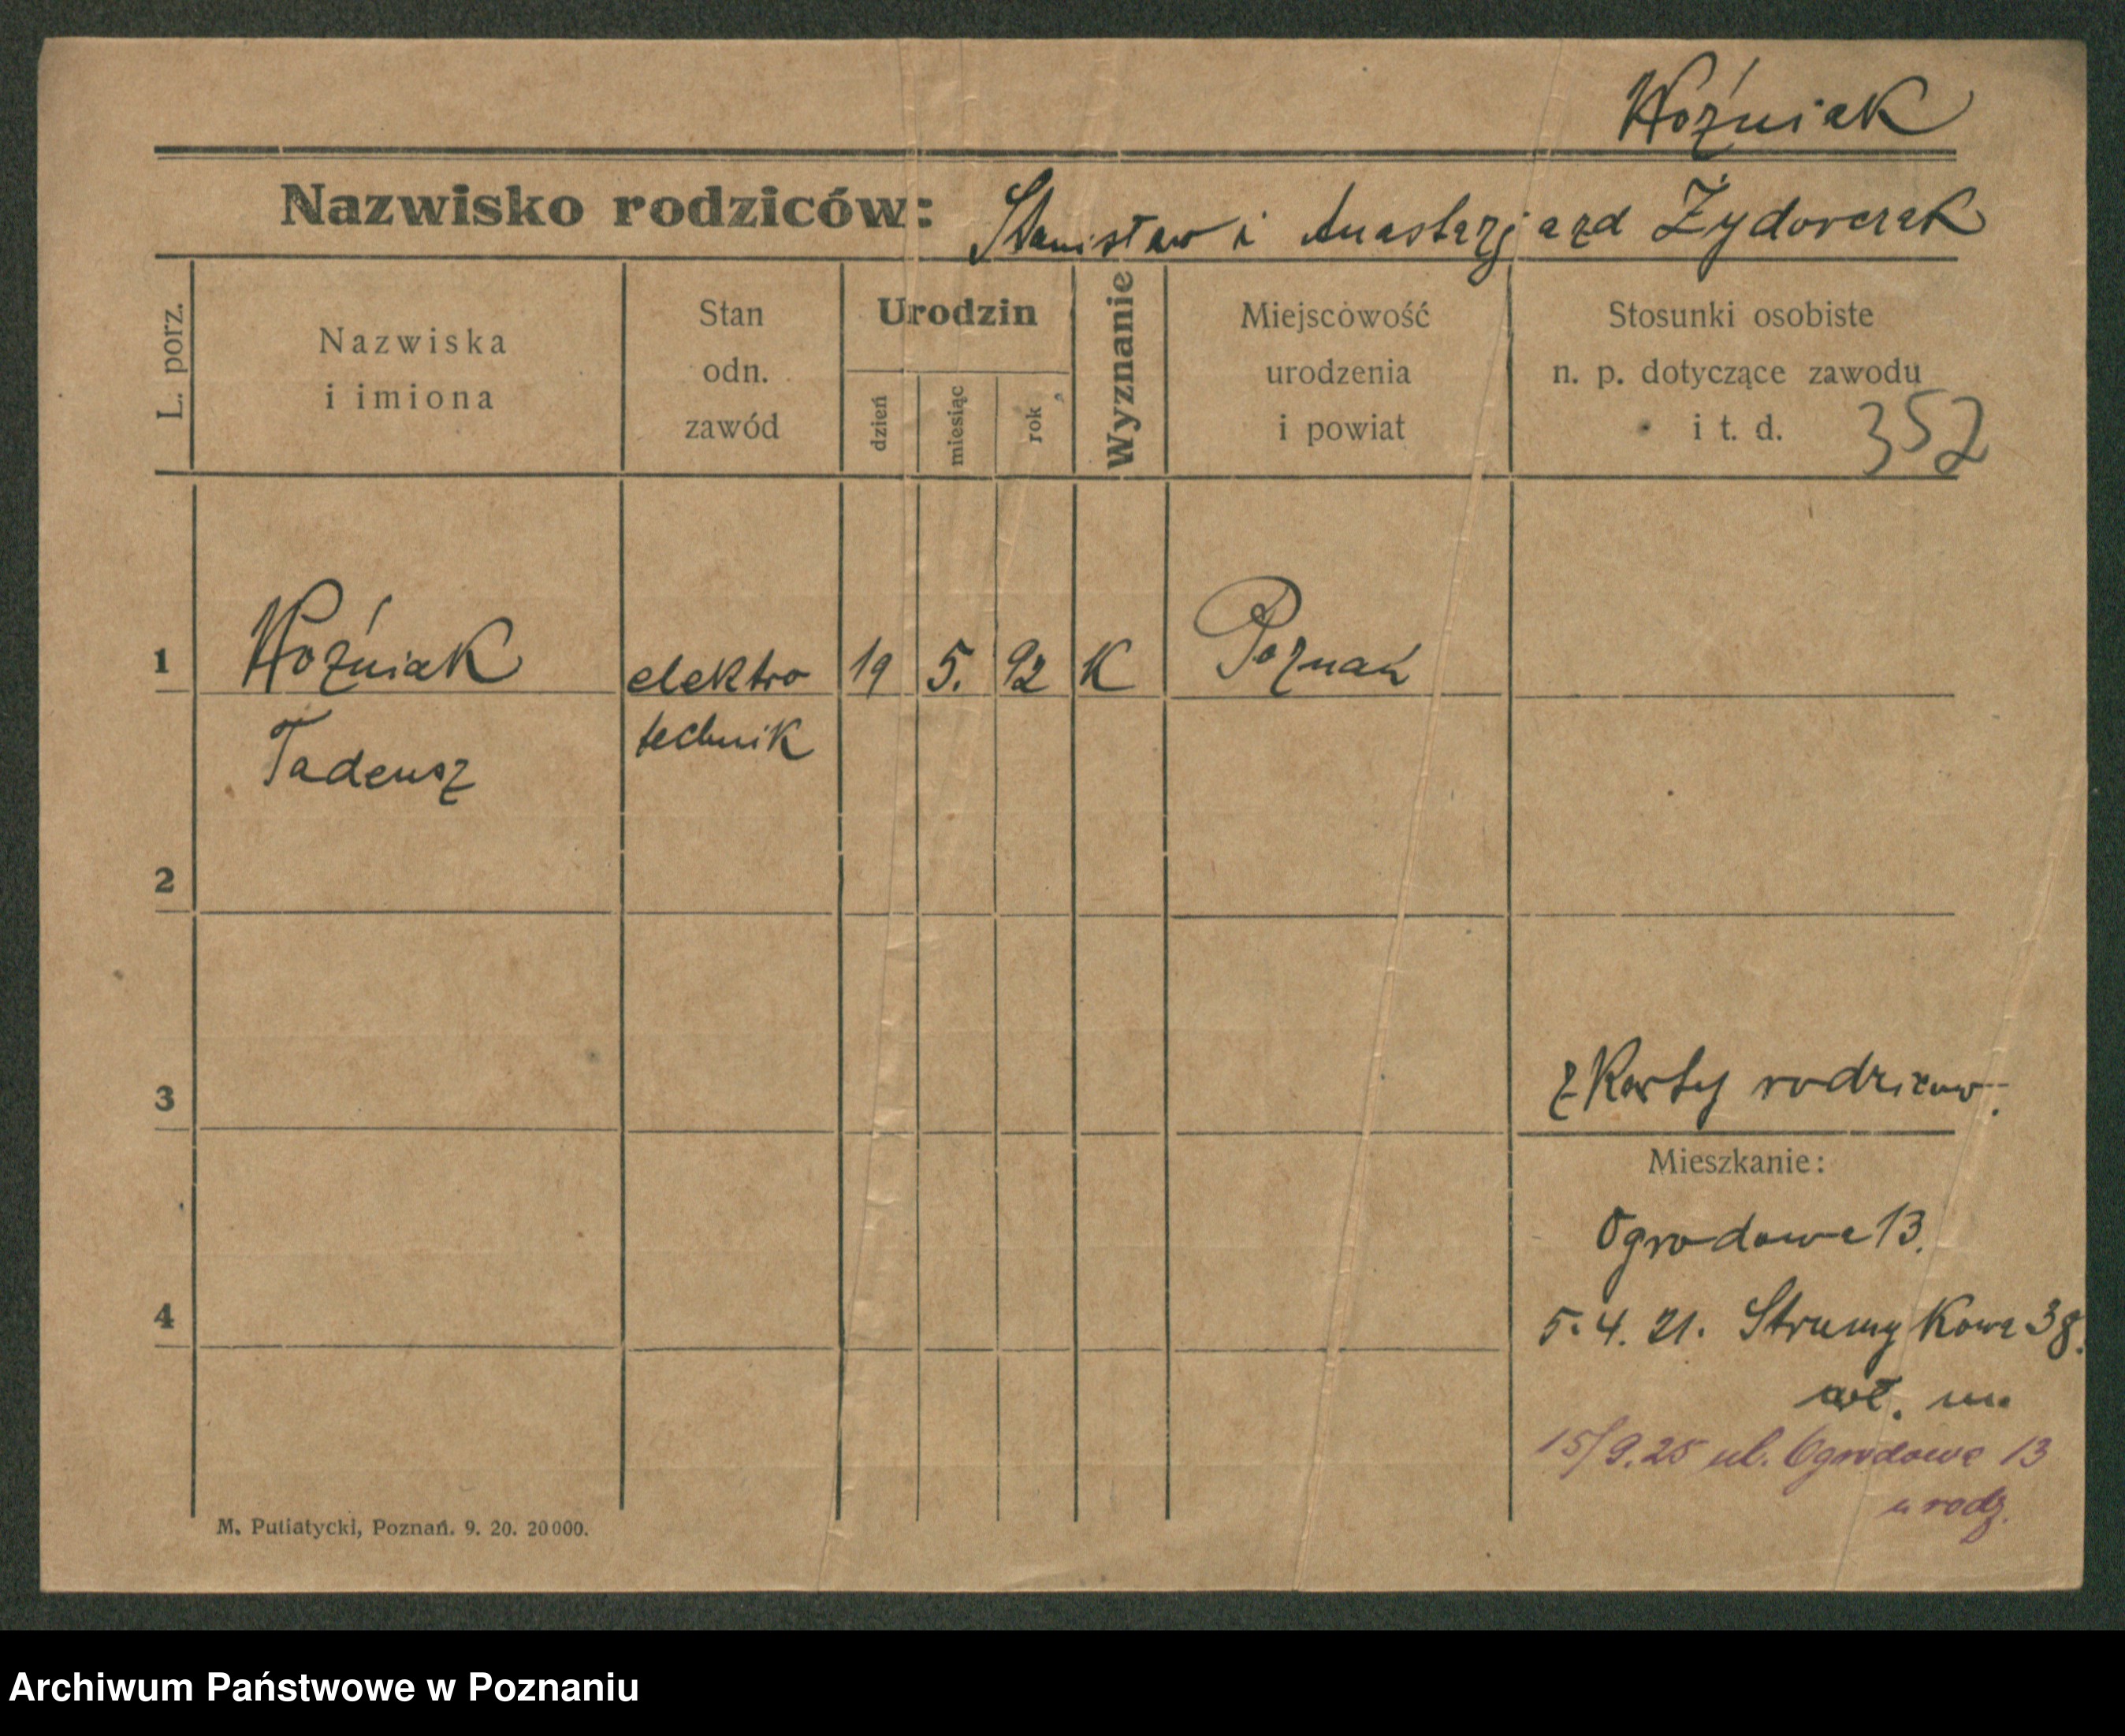 Woźniak
Nazwisko rodziców: Stanisław i Anastazja zd Żydorczak
L. porz.
Nazwiska
i imiona
Stan
odn.
zawód
Urodzin
dzień
miesiąc
rok
Wyznanie
Miejscowość
urodzenia
i powiat
Stosunki osobiste
n. p. dotyczące zawodu
i t. d.
352
1 Woźniak elektro 19 5. 92 K Poznań
Tadeusz technik
2
3
z Karty rodziców.
Mieszkanie:
Ogrodowa 13.
4
5. 4. 21. Strumykowa 38.
wł. m.
15/9.25 ul. Ogrodowa 13
u rodz.
M. Putiatycki, Poznań. 9. 20. 20000.
Archiwum Państwowe w Poznaniu